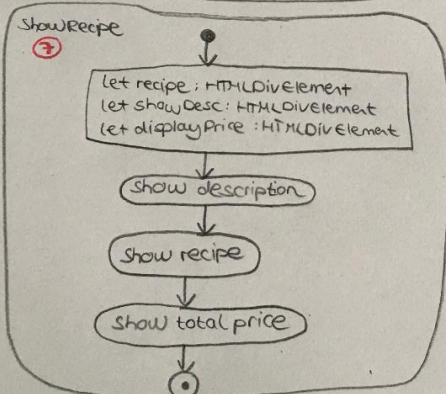 ShowRecipe
7
let recipe: HTMLDivElement
let showDesc: HTMLDivElement
let displayPrice: HTMLDivElement
show description
show recipe
show total price